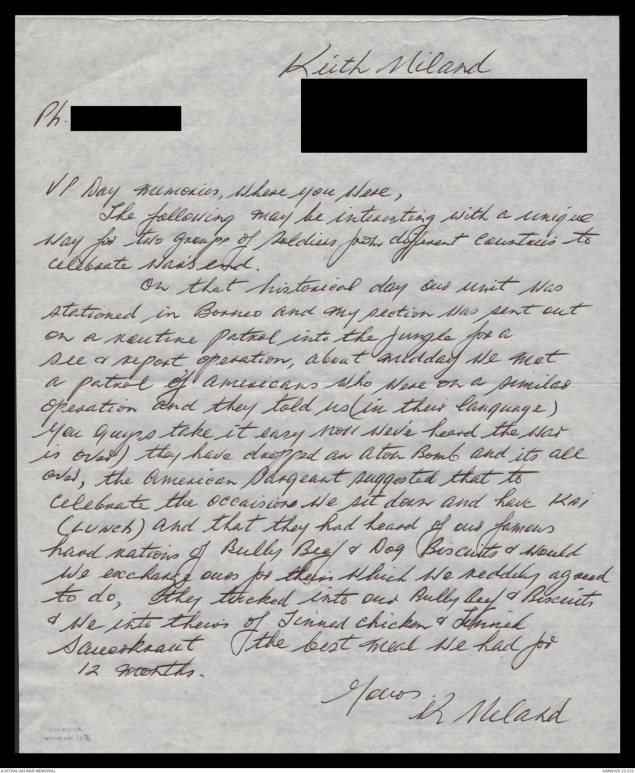 Keith Niland
Ph.
VP Day memories, where you were,
The following may be interesting with a unique
way for two groups of soldiers from different countries to
celebrate wars end.
On that historical day our unit was
stationed in Borneo and my section was sent out
on a routine patrol into the jungle for a
see & report operation, about midday we met
a patrol of americans who were on a similar
operation and they told us (in their language)
you guys take it easy now we've heard the war
is over) they have dropped an Atom Bomb and its all
over, the American Sargeant suggested that to
celebrate the occaision we sit down and have Kai
(LUNCH) and that they had heard of our famous
hard rations of Bully Beef & Dog Biscuits & would
we exchange ours for theirs which we reddily agreed
to do, they tucked into our Bully beef & Biscuits
& we into theirs of Tinned chicken & Tinned
Sauerkraut the best meal we had for
12 months.
Yours
K Niland
AUSTRALIAN WAR MEMORIAL